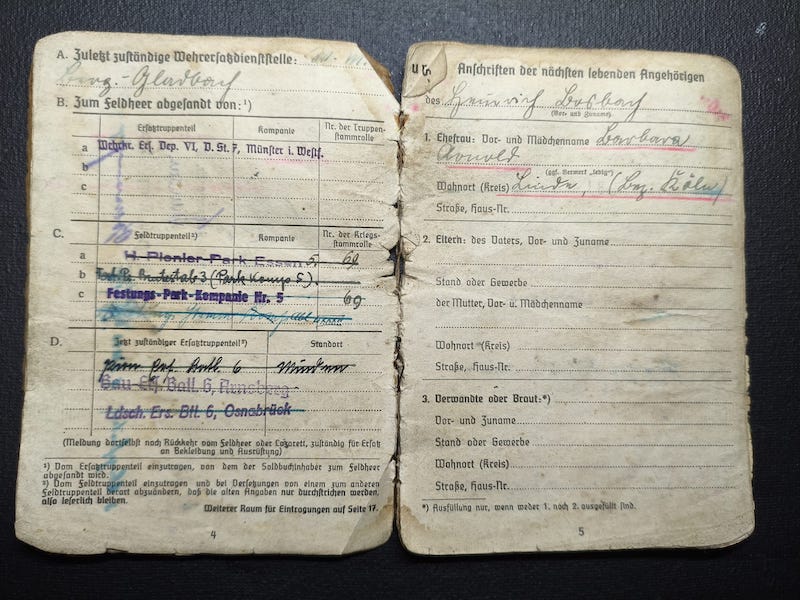 A. Zuletzt zuständige Wehrersatzdienststelle:
Berg.-Gladbach
B. Zum Feldheer abgesandt von:¹)
Ersatztruppenteil Kompanie Nr. der Truppen-
stammrolle
a Wehrkr. Ers. Dep. VI, D. St. 7, Münster i. Westf.
b
c
C. Feldtruppenteil²) Kompanie Nr. der Kriegs-
stammrolle
a H. Pionier Park Essen 5. 69
b (Park Komp 5).
c Festungs-Park-Kompanie Nr. 5 69
D. Jetzt zuständiger Ersatztruppenteil²) Standort
Pion Ers. Batl. 6 Minden
Bau Ers. Batl. 6, Arnsberg
Ldsch. Ers. Btl. 6, Osnabrück
(Meldung dortselbst nach Rückkehr vom Feldheer oder Lazarett, zuständig für Ersatz
an Bekleidung und Ausrüstung)
¹) Vom Ersatztruppenteil einzutragen, von dem der Soldbuchinhaber zum Feldheer
abgesandt wird.
²) Vom Feldtruppenteil einzutragen und bei Versetzungen von einem zum anderen
Feldtruppenteil derart abzuändern, daß die alten Angaben nur durchstrichen werden,
also leserlich bleiben.
Weiterer Raum für Eintragungen auf Seite 17.
4
Anschriften der nächsten lebenden Angehörigen
des Heinrich Bosbach
(Vor- und Zuname)
1. Ehefrau: Vor- und Mädchenname Barbara
Arnold
(ggf. Vermerk „ledig“)
Wohnort (Kreis) Linde, (Bez. Köln)
Straße, Haus-Nr.
2. Eltern: des Vaters, Vor- und Zuname
Stand oder Gewerbe
der Mutter, Vor- u. Mädchenname
Wohnort (Kreis)
Straße, Haus-Nr.
3. Verwandte oder Braut:*)
Vor- und Zuname
Stand oder Gewerbe
Wohnort (Kreis)
Straße, Haus-Nr.
*) Ausfüllung nur, wenn weder 1. noch 2. ausgefüllt sind.
5